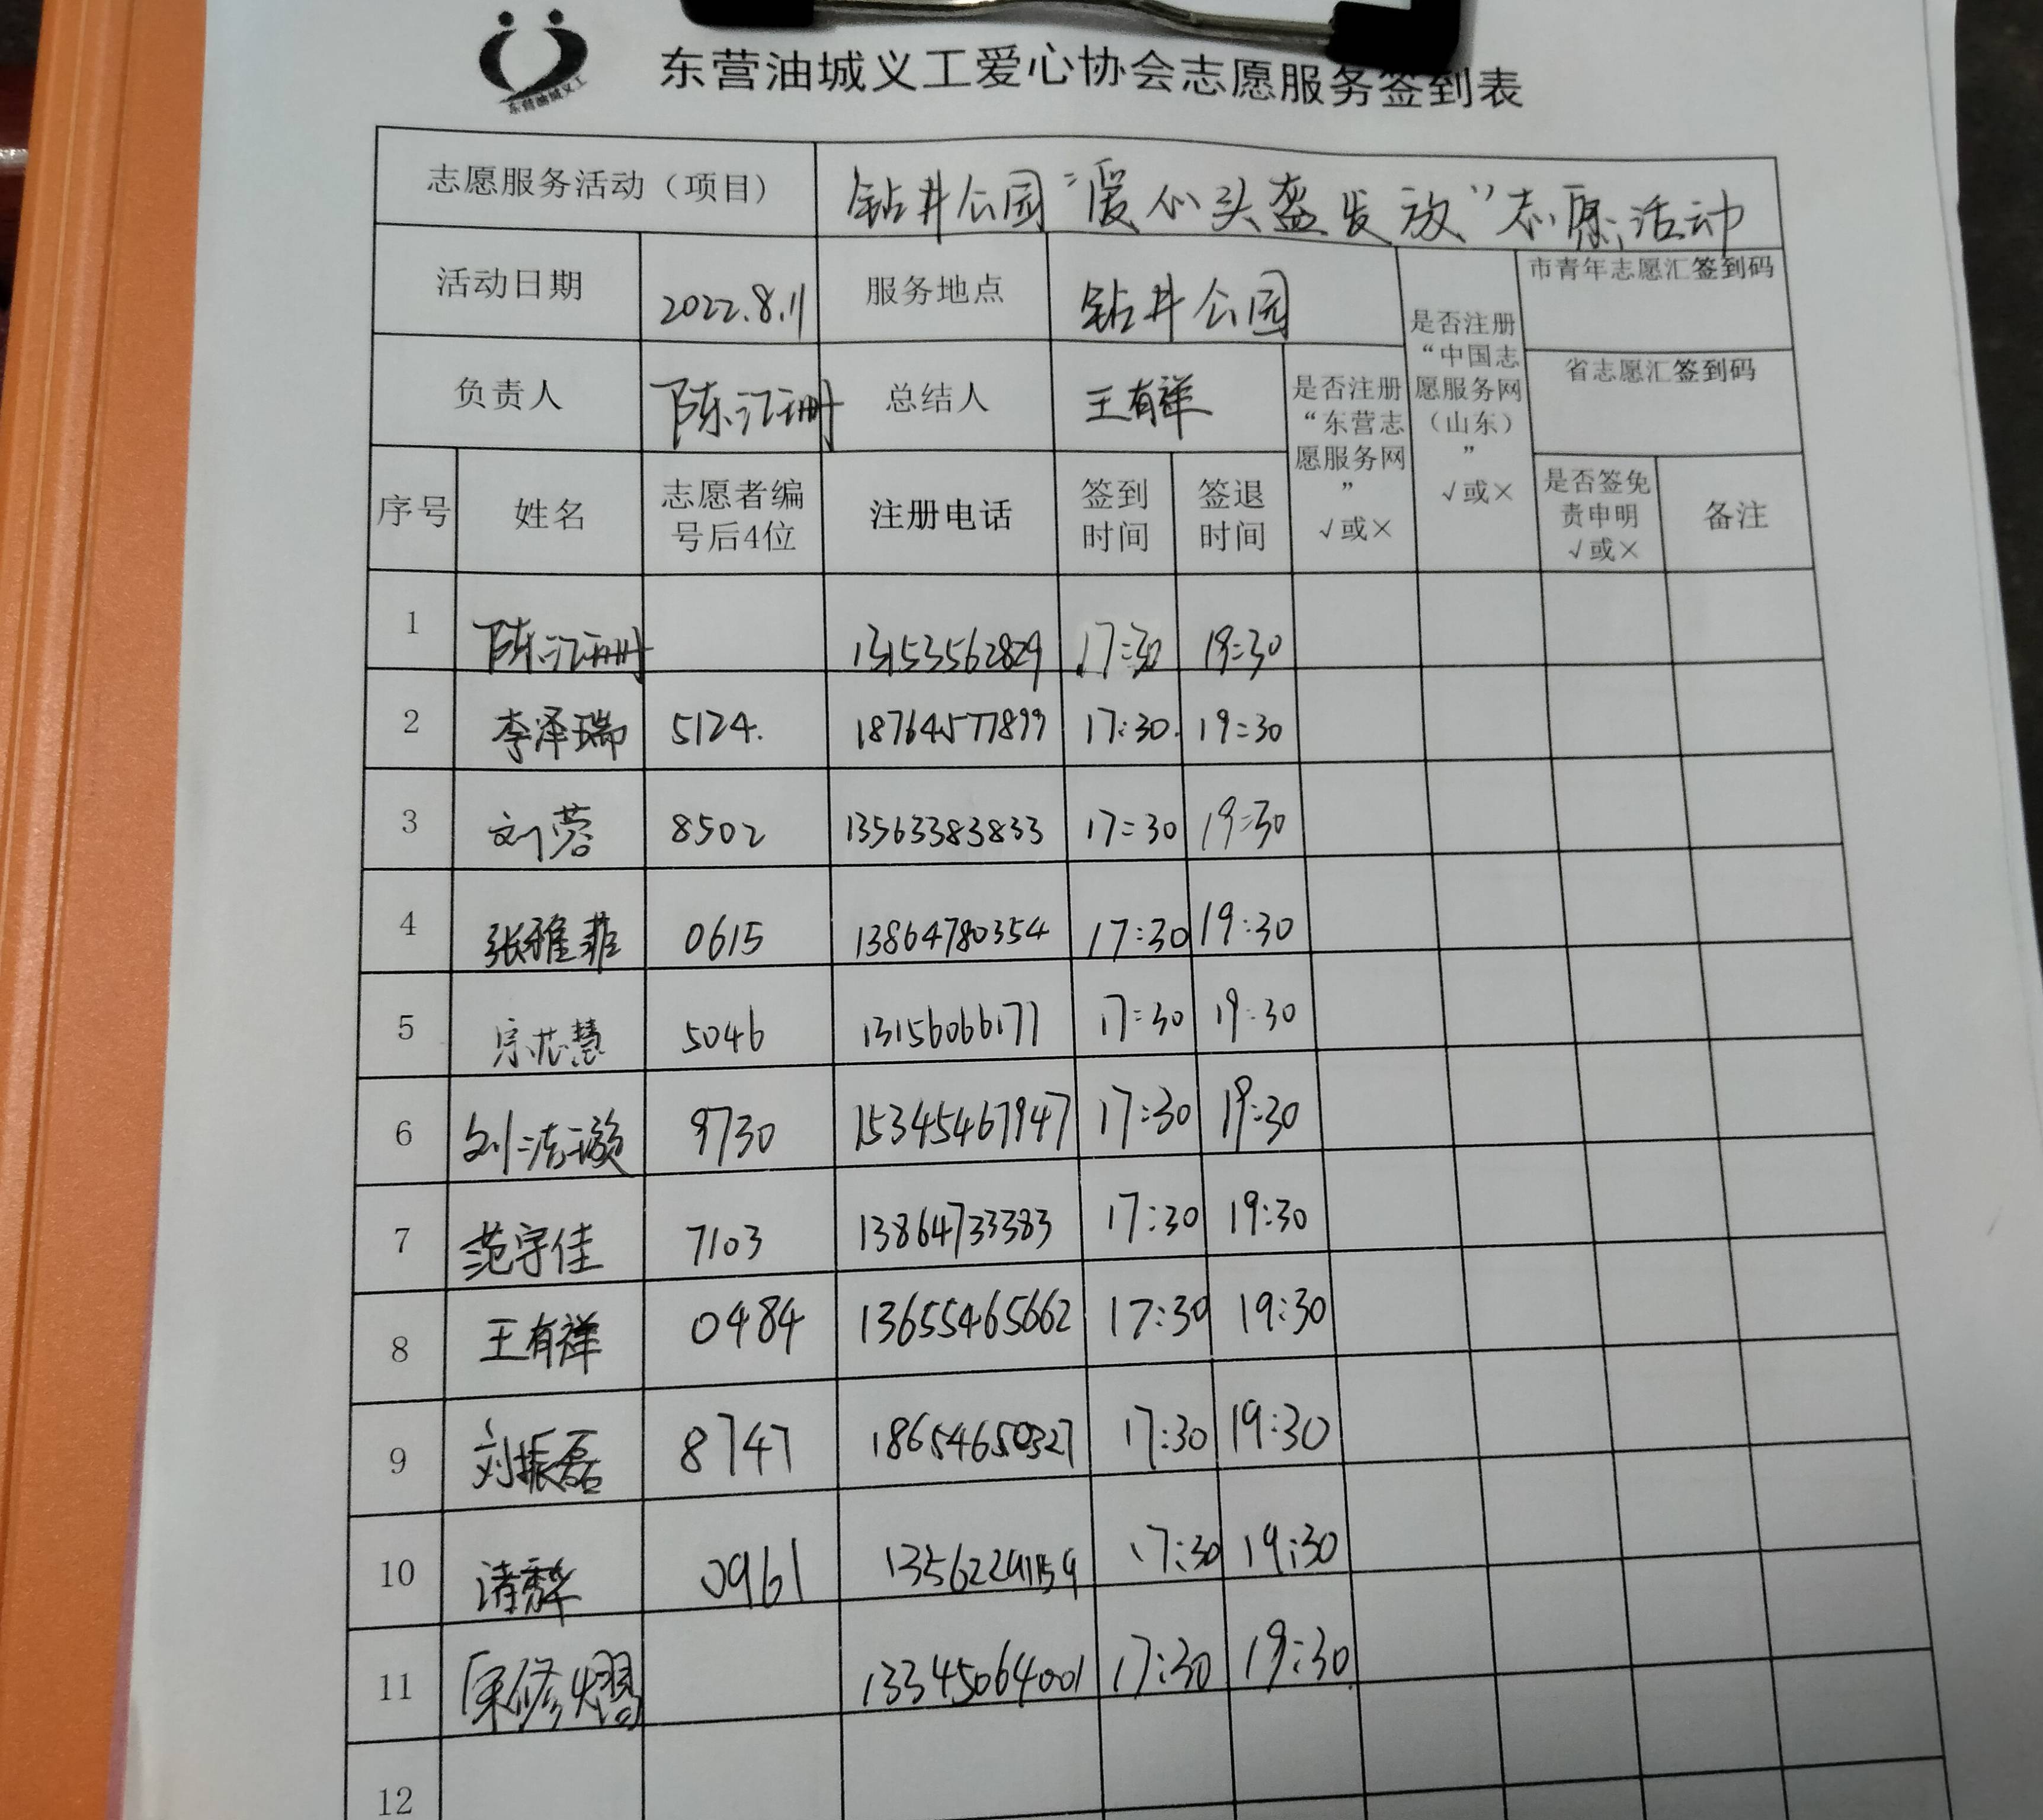 东营油城义工
东营油城义工爱心协会志愿服务签到表
志愿服务活动（项目） 钻井公园“爱心头盔发放”志愿活动
活动日期 2022.8.11 服务地点 钻井公园
负责人 陈江珊 总结人 王有祥
是否注册“东营志愿服务网” √或×
是否注册“中国志愿服务网（山东）” √或×
市青年志愿汇签到码
省志愿汇签到码
序号 姓名 志愿者编号后4位 注册电话 签到时间 签退时间 是否签免责申明 √或× 备注
1 陈江珊 13153562829 17:30 19:30
2 李泽瑞 5124. 18764577899 17:30. 19:30
3 刘蓉 8502 13563383833 17:30 19:30
4 张雅菲 0615 13864780354 17:30 19:30
5 宗芯慧 5046 13156066177 17:30 19:30
6 刘洁璇 9730 15345467947 17:30 19:30
7 范宇佳 7103 13864733383 17:30 19:30
8 王有祥 0484 13655465662 17:30 19:30
9 刘振磊 8747 18654650327 17:30 19:30
10 0961 17:30 19:30
11 13345064001 17:30 19:30
12